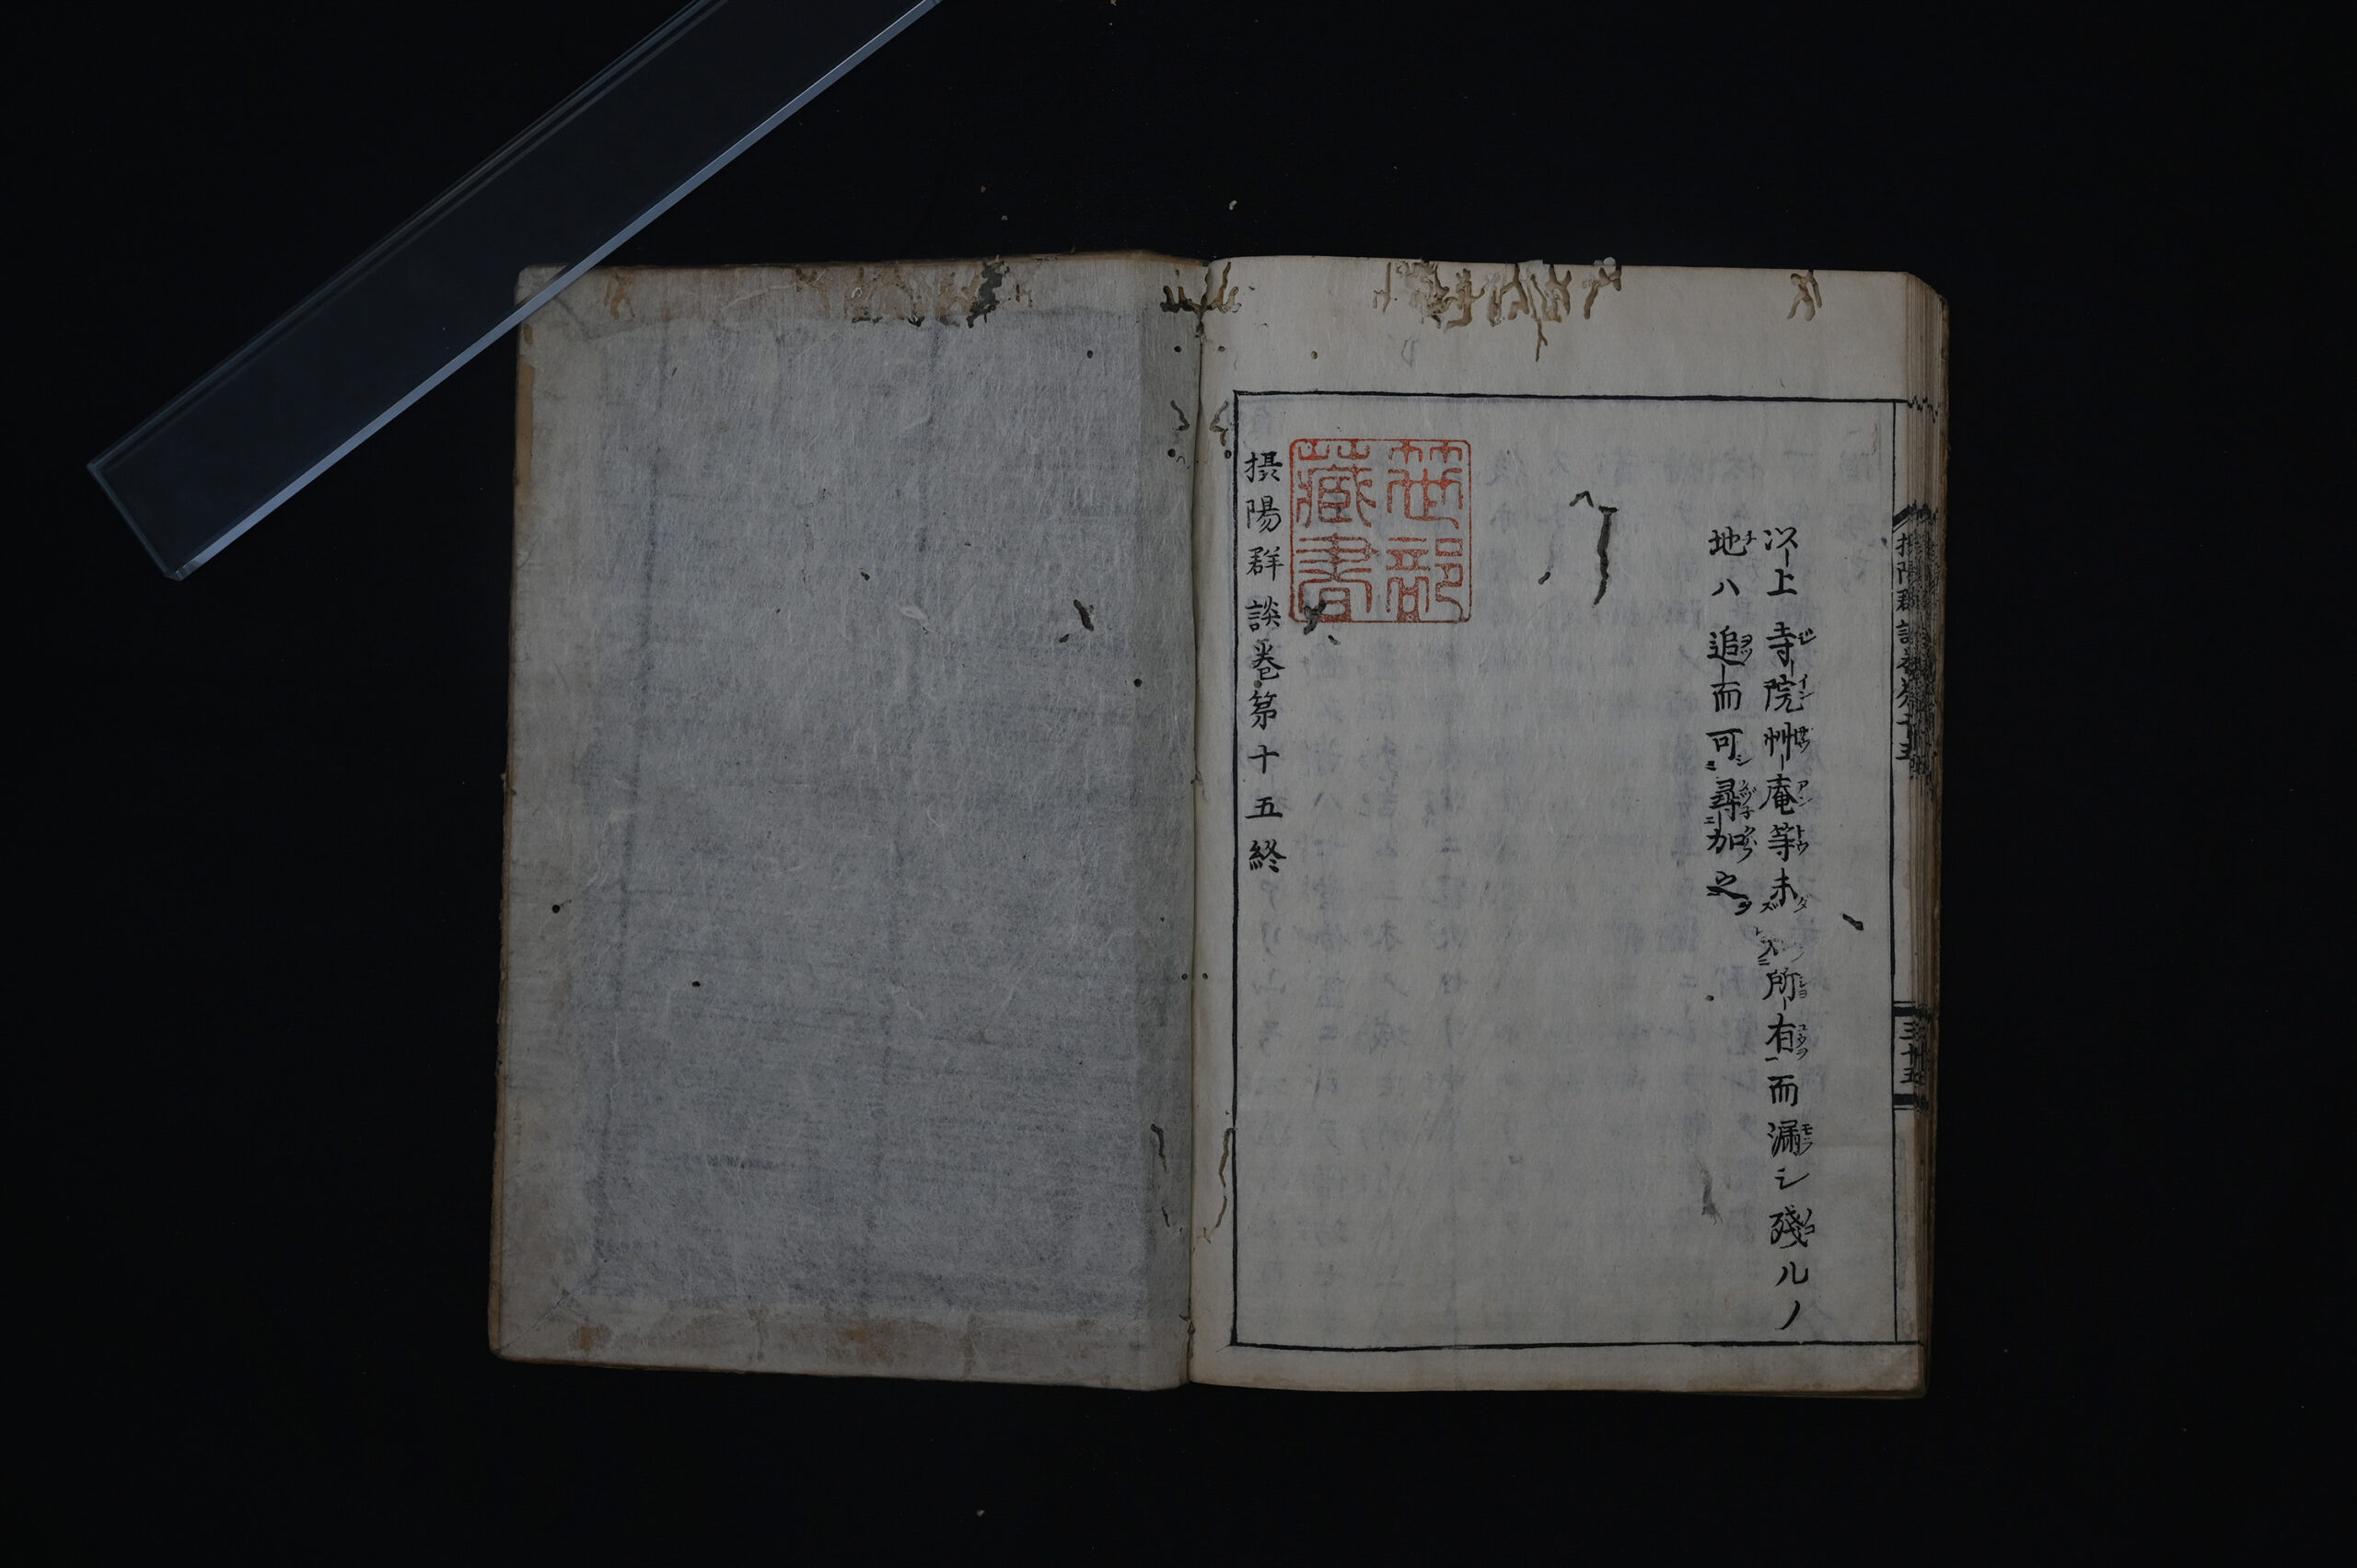 以上寺院艸庵等未所有而漏シ殘ルノ
地ハ追而可尋加之
藏書
摂陽群談巻第十五終
摂陽群談巻第十五
三十五